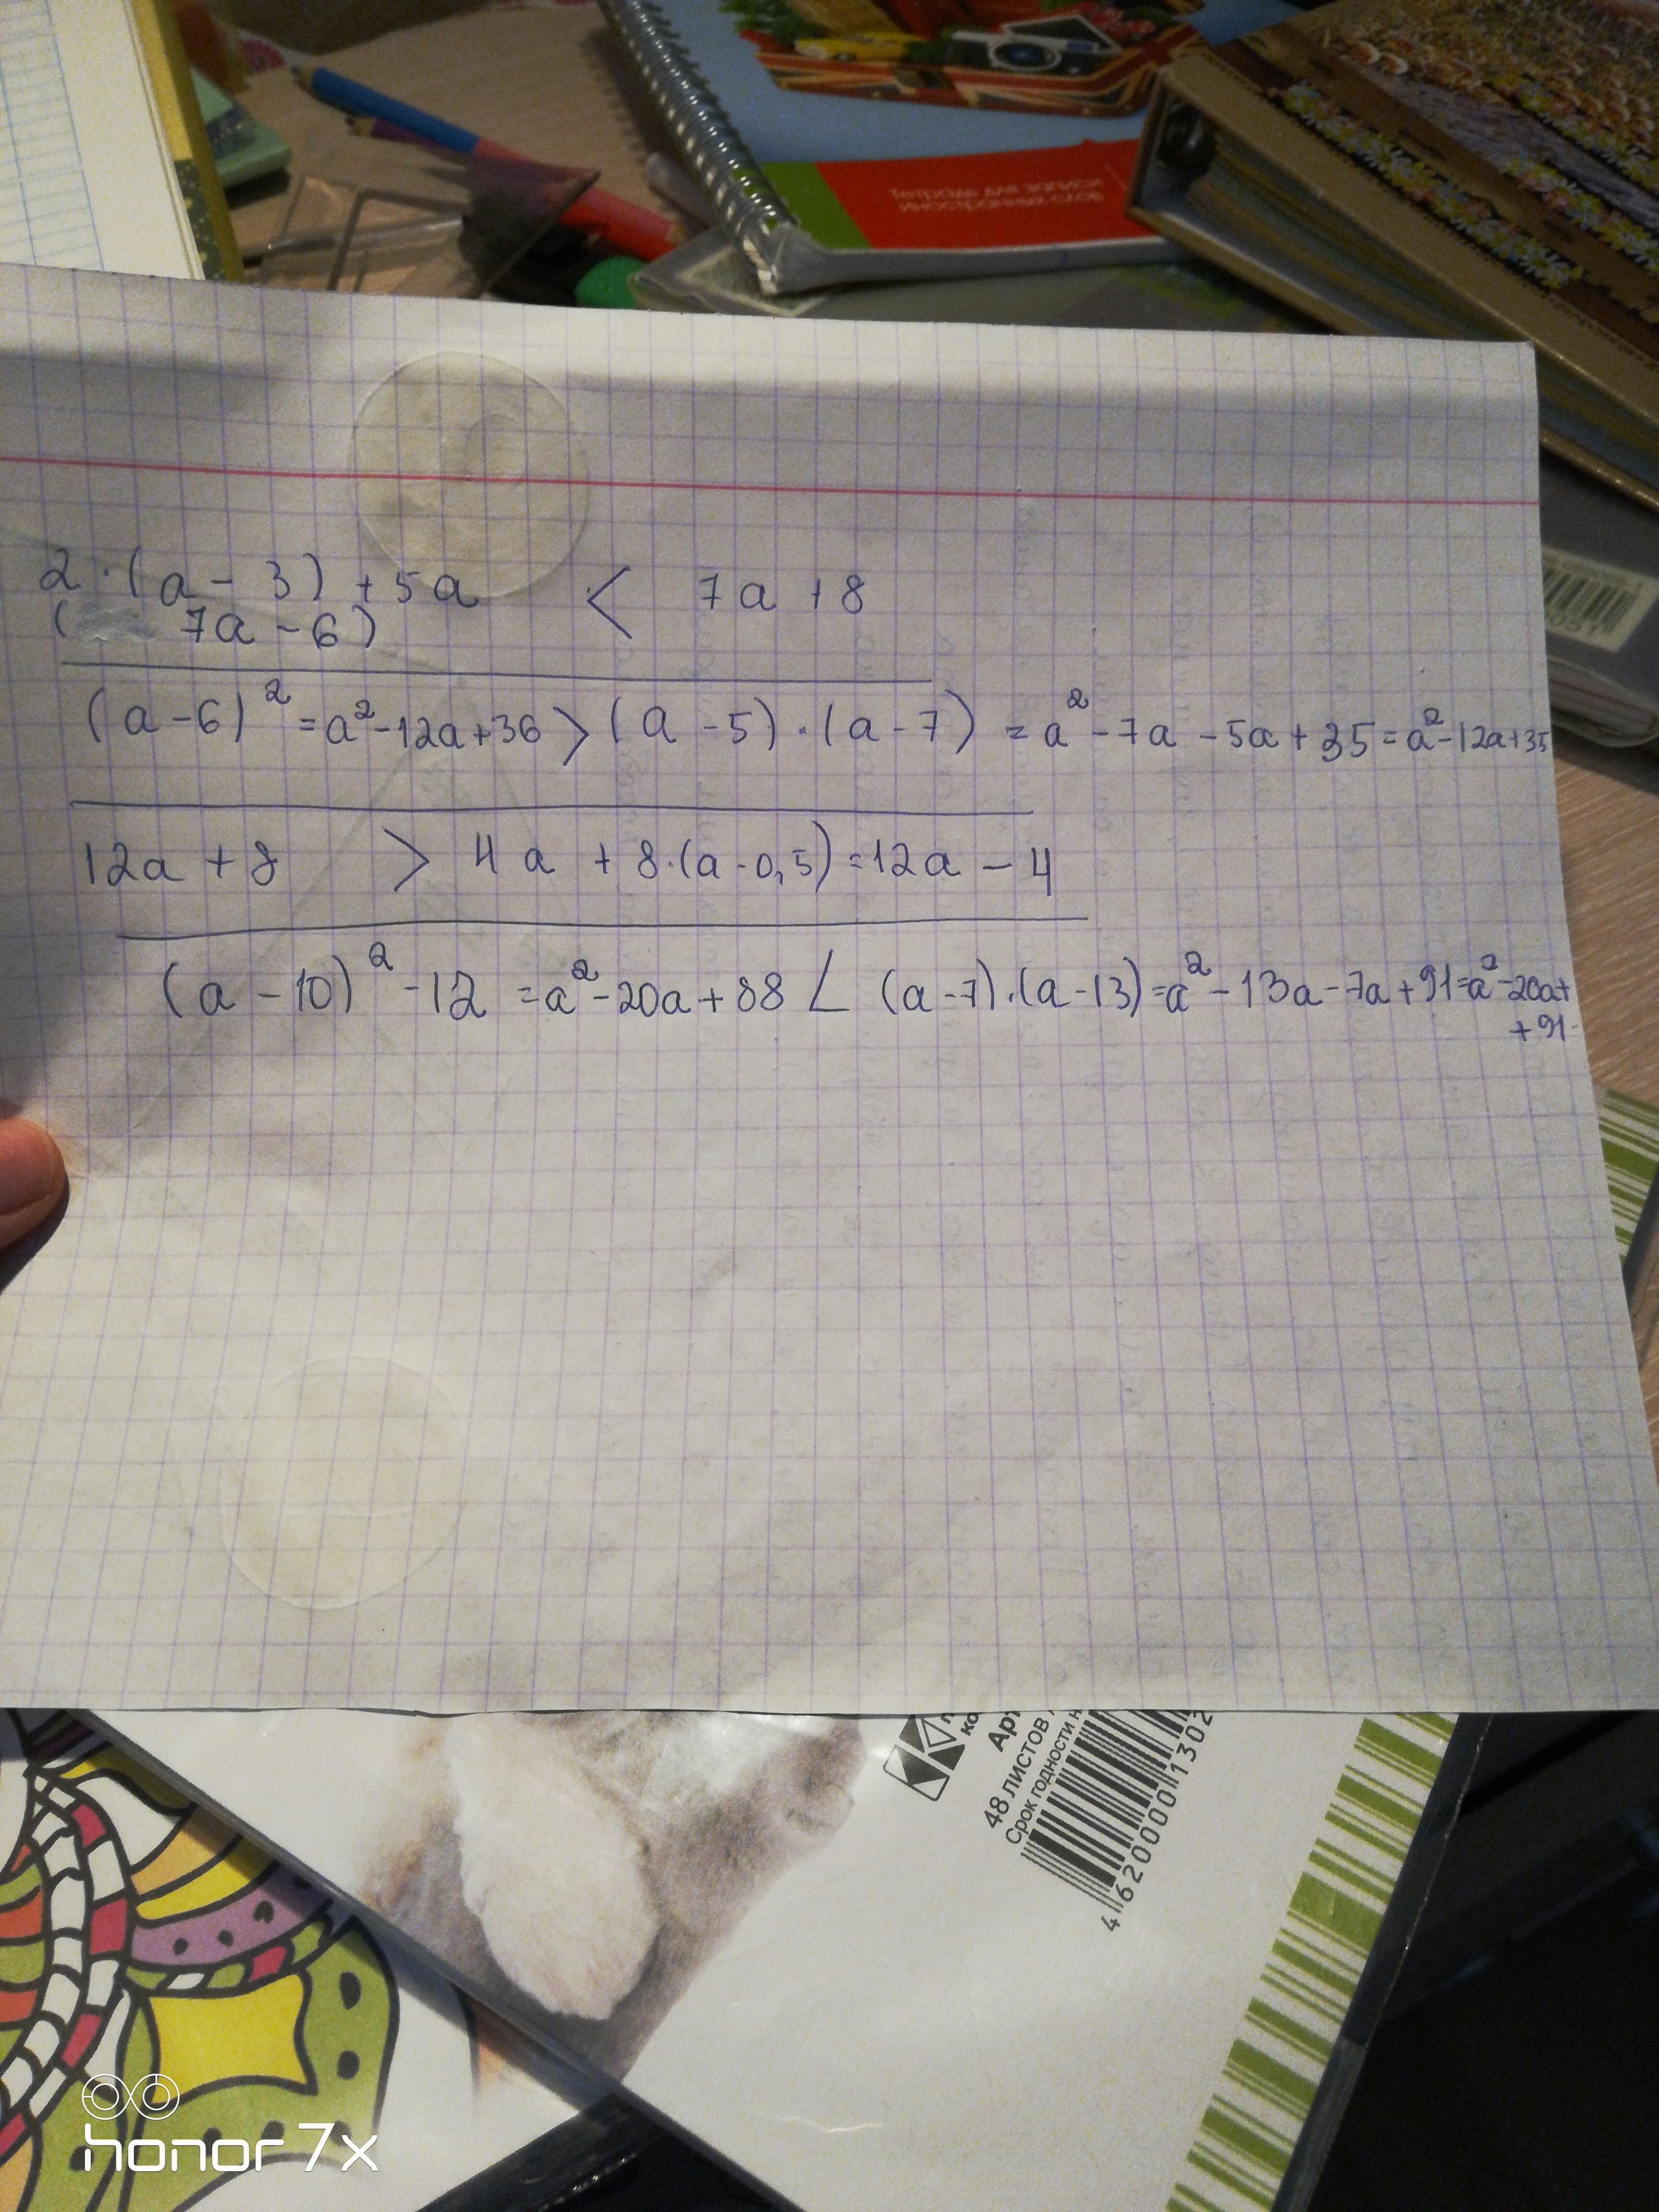 Тетрадь для записи
иностранных слов
2·(a-3)+5a < 7a+8
(7a-6)
(a-6)²=a²-12a+36>(a-5)·(a-7)=a²-7a-5a+35=a²-12a+35
12a+8 > 4a+8·(a-0,5)=12a-4
(a-10)²-12=a²-20a+88<(a-7)·(a-13)=a²-13a-7a+91=a²-20a+
+91
Арт
48 листов
Срок годности н
4 620000 1302
honor 7x